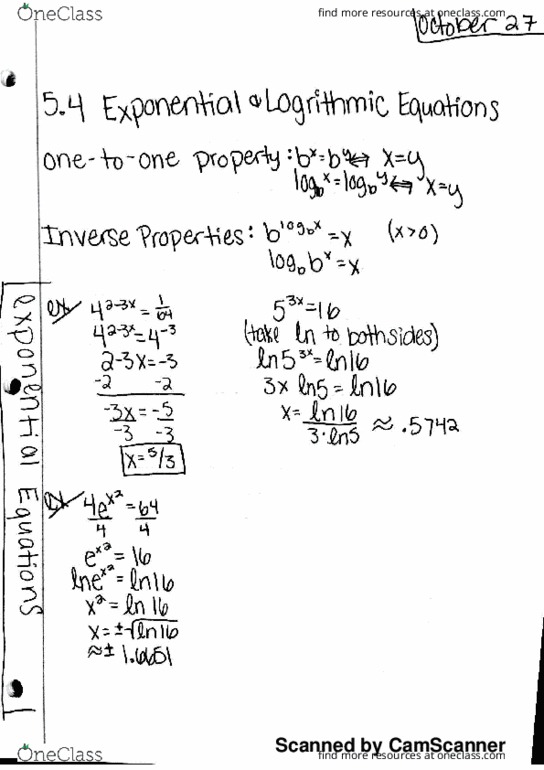 OneClass
find more resources at oneclass.com
find more resources at oneclass.com
October 27
5.4 Exponential & Logrithmic Equations
one-to-one property: b^x = b^y ↔ x=y
log_b^x = log_b^y ↔ x=y
Inverse Properties: b^log_b x = x (x>0)
log_b b^x = x
exponential Equations
ex
4^2-3x = 1/64
4^2-3x = 4^-3
2-3x = -3
-2 -2
-3x = -5
-3 -3
x = 5/3
5^3x = 16
(take ln to both sides)
ln 5^3x = ln 16
3x ln 5 = ln 16
x = ln 16 / 3·ln 5 ≈ .5742
ex
4e^x^2 = 64
4 4
e^x^2 = 16
ln e^x^2 = ln 16
x^2 = ln 16
x = ±√ln 16
≈ ± 1.6651
Scanned by CamScanner
OneClass
find more resources at oneclass.com
find more resources at oneclass.com